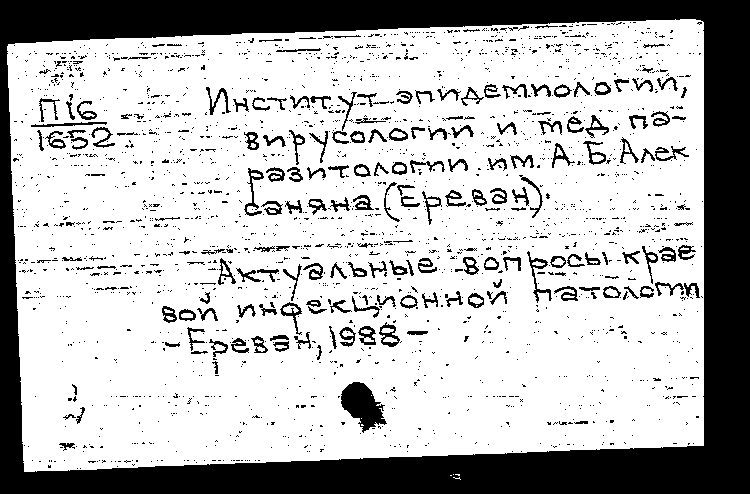 П16
1652
Институт эпидемиологии,
вирусологии и мед. па-
разитологии им. А.Б. Алек
саняна (Ереван).
Актуальные вопросы крае
вой инфекционной патологии
- Ереван, 1988 -